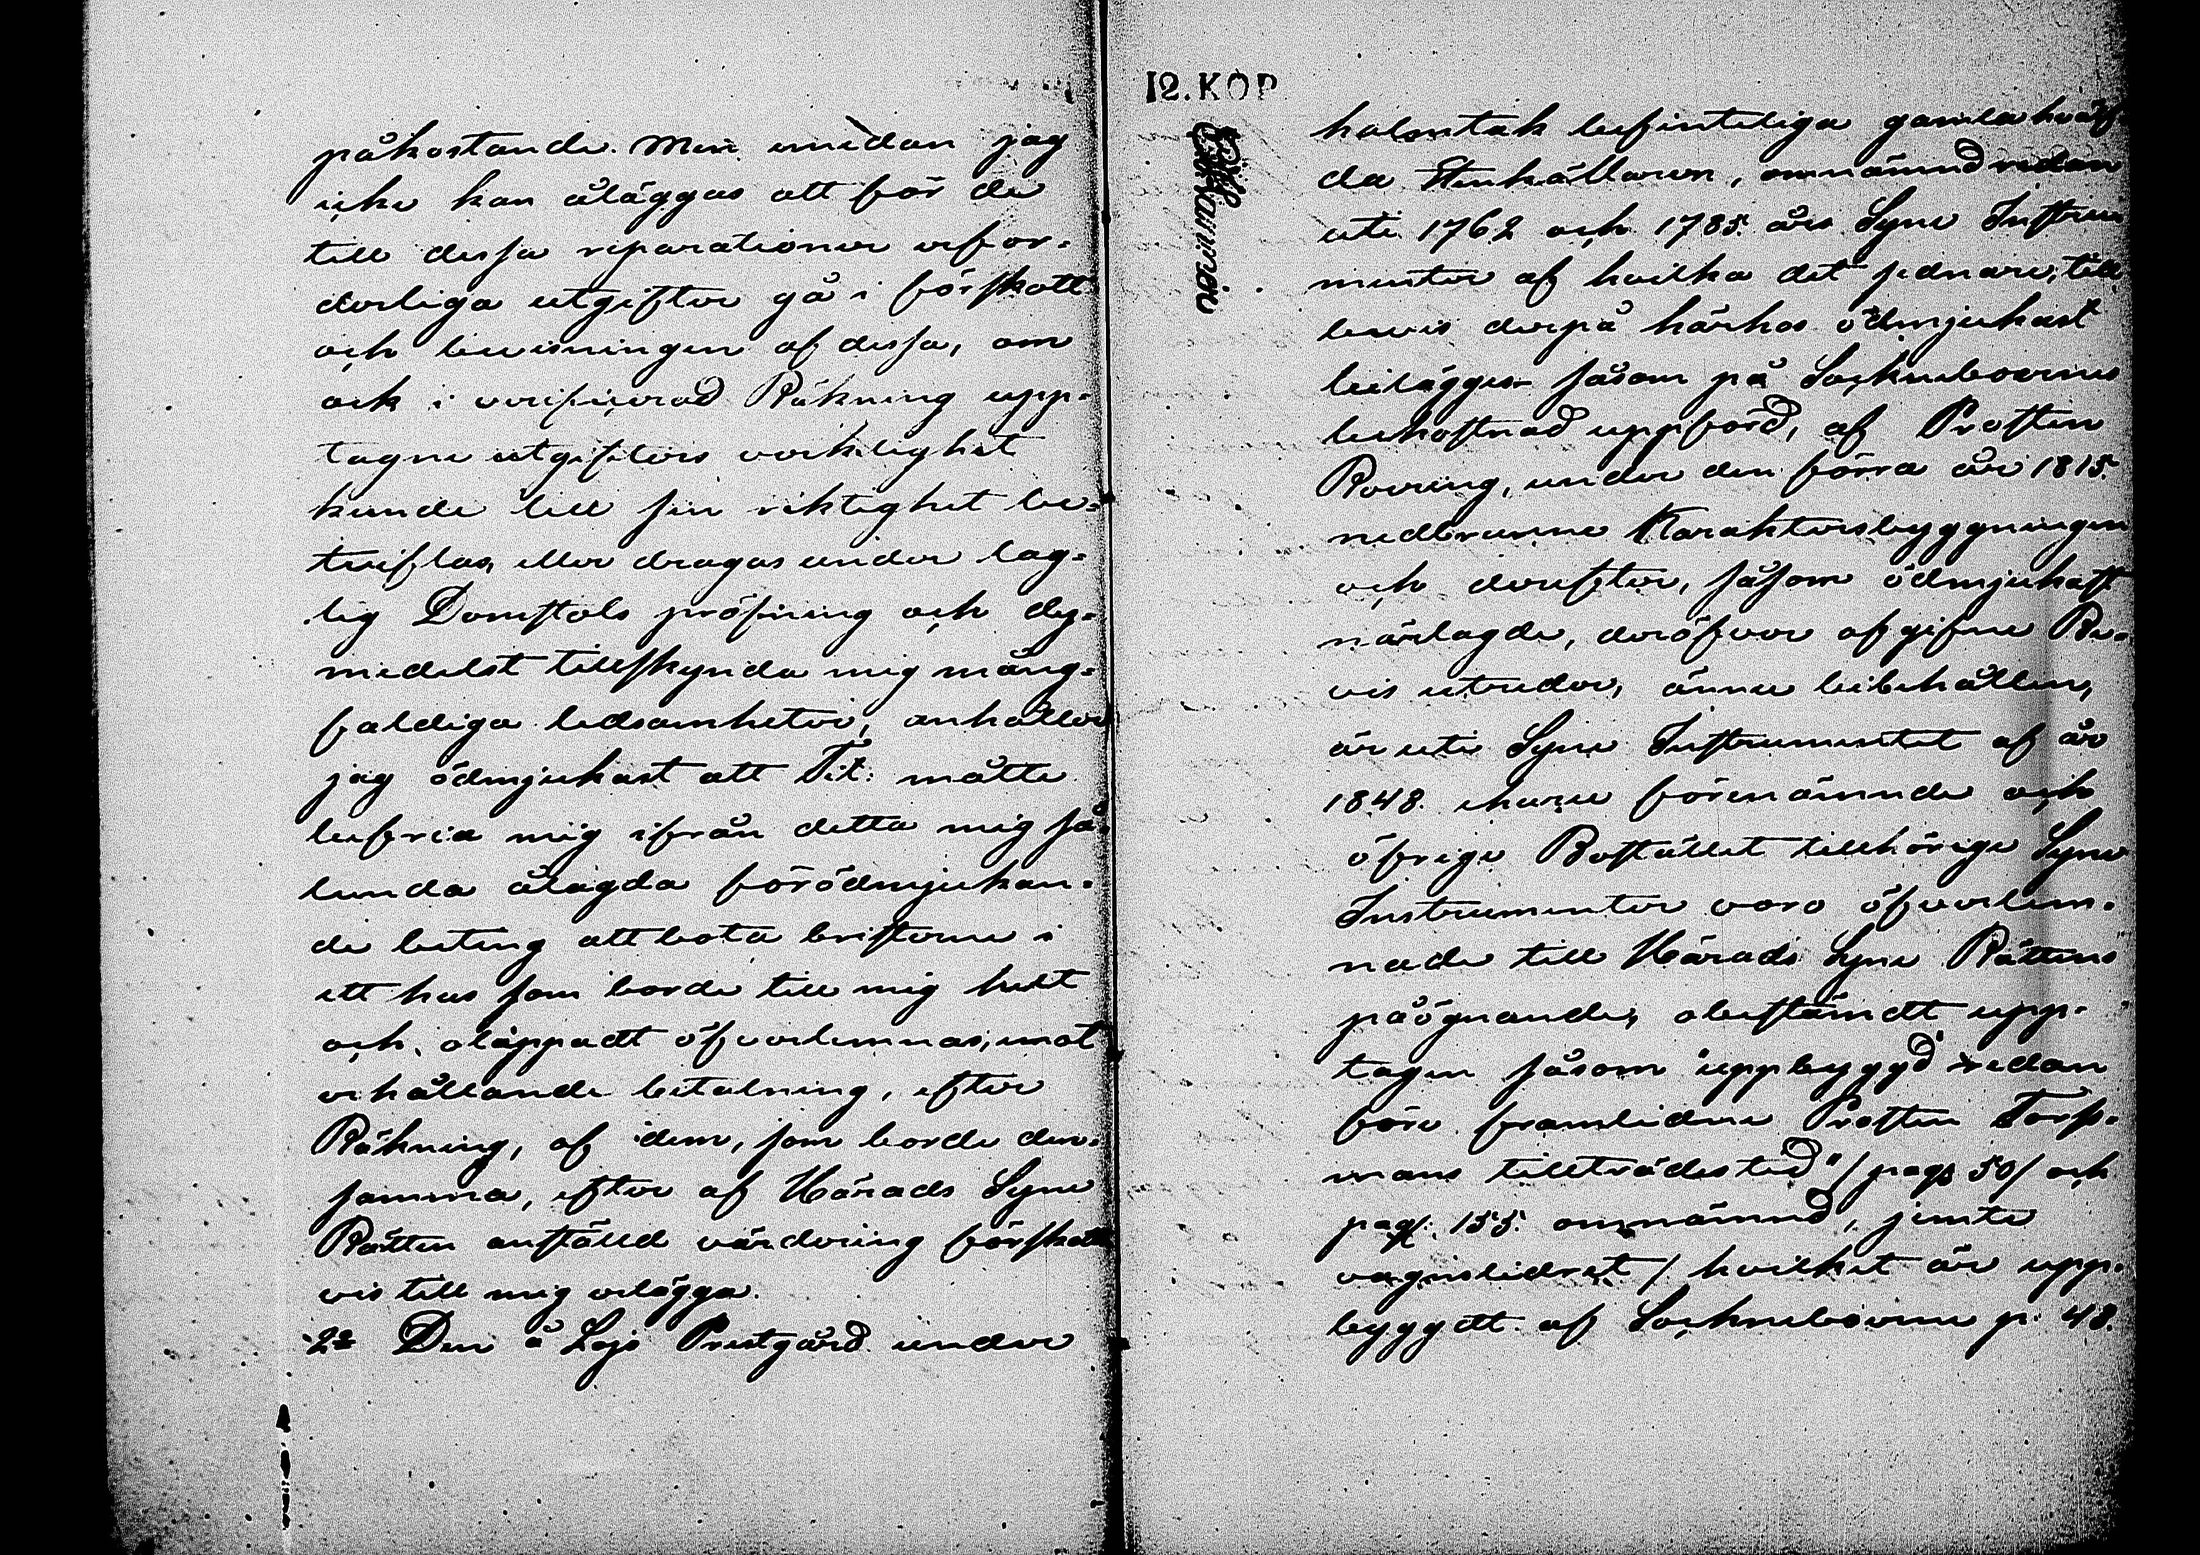 påkostande. Men emedan jag
icke kan åläggas att för de
till dessa reparationer erfor-
derliga utgifter gå i förskott
och bevisningen af dessa, om
ock i verificerad Räkning upp-
tagne utgifters verklighet
kunde till sin riktighet be-
tviflas, eller dragas under lag-
lig Domstols pröfning och dy-
medelst tillskynda mig mång-
faldiga ledsamheter, anhåller
jag ödmjukast att Tit: måtte
befria mig ifrån detta mig så-
lunda ålagda förödmjukan-
de beting att bota bristerne i
ett hus som borde till mig helt
och olappadt öfverlemnas, mot
erhållande betalning, efter
Räkning, af dem, som borde den-
samma, efter af Härads Syne
Rätten anställd värdering förskott
vis till mig erlägga.
2º Den å Lojo Prestgård under
12. KOP
halmtak befinteliga gamla hvälf-
da Stenkällaren, omnämnd redan
uti 1762 och 1785 års Syne Instru
menter af hvilka det sednare, till
bevis derpå härhos ödmjukast
bilägges såsom på Sockneboernes
bekostnad uppförd, af Prosten
Rovring, under den förra år 1815
nedbrunne Karaktersbyggningen
och derefter, såsom ödmjukast
närlagde, deröfver afgifne Be-
vis utreder, ännu bibehållen,
är uti Syne Instrumentet af år
1848 ehuru förenämnde och
öfrige Bostället tillhörige Syne
Instrumenter voro öfverlem-
nade till Härads Syne Rättens
påögnande, obestämdt upp-
tagen såsom "uppbyggd redan
före framlidne Prosten Forss-
mans tillträdestid" / pag: 50 / och
pag: 155. omnämnd, jemte
vagnslidret / hvilket är upp-
byggdt af Sockneboerne p: 48.